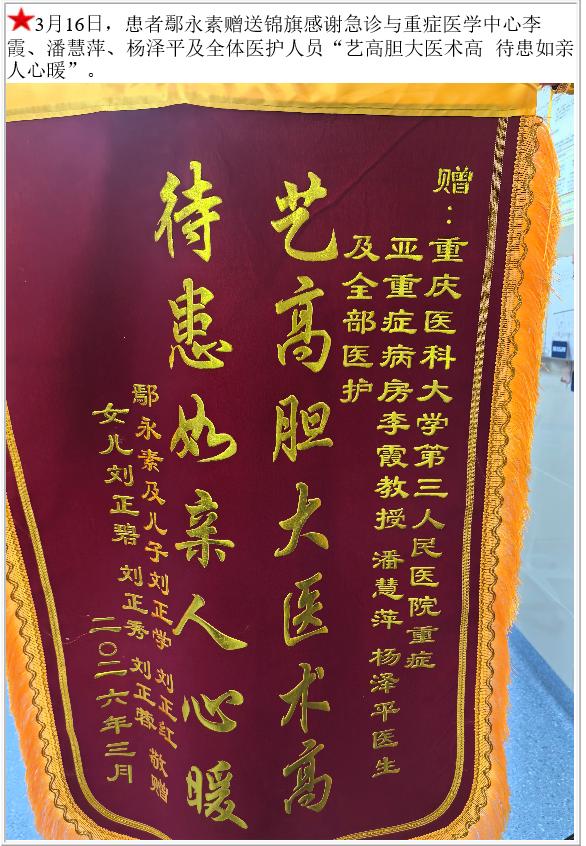 ★3月16日，患者鄢永素赠送锦旗感谢急诊与重症医学中心李
霞、潘慧萍、杨泽平及全体医护人员“艺高胆大医术高 待患如亲
人心暖”。
赠：重庆医科大学第三人民医院重症
亚重症病房李霞教授 潘慧萍 杨泽平医生
及全部医护
艺高胆大医术高
待患如亲人心暖
鄢永素及儿子刘正学 刘正红 敬赠
女儿刘正碧 刘正秀 刘正蓉
二〇二六年三月